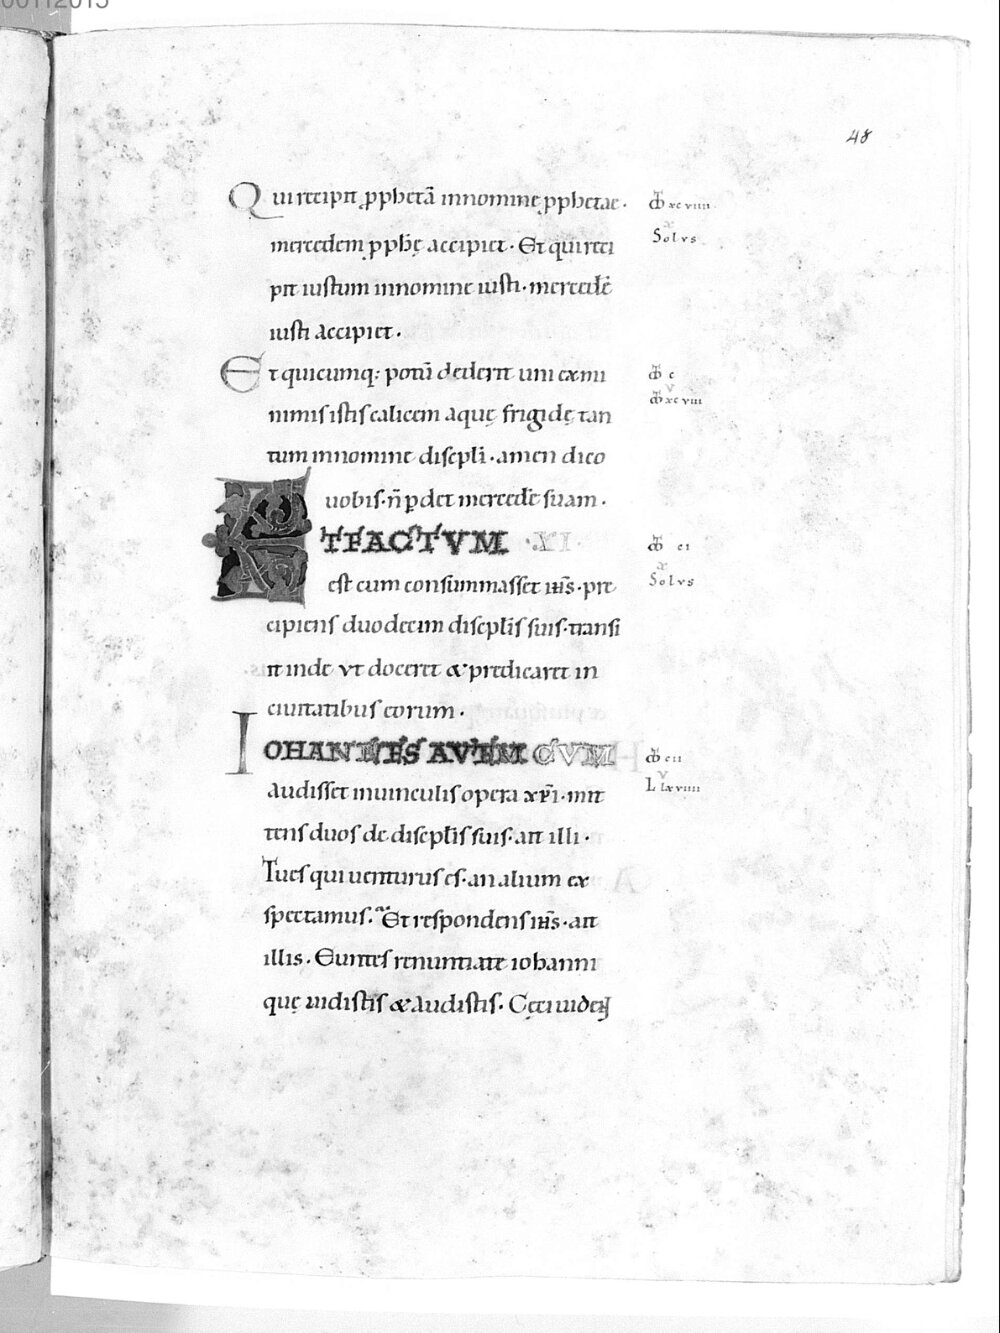 00112015
48
Qui recipit ꝓphetā innomine ꝓphetae·
mercedem ꝓph̄ę accipiet· Et qui reci
pit iustum innomine iusti· mercedē
iusti accipiet·
Et quicumq: potū dederit uni exmi
nimis istis calicem aquę frigidę tan
tum innomine discpli·amen dico
uobis·n̄ ꝑdet mercedē suam·
ETFACTVM ·XI·
est cum consummasset ih̄s·pre
cipiens duodecim discpl̄is suis·transi
it inde vt doceret & predicaret in
ciuitatibus eorum·
IOHANNES AVTEM CVM
audisset inuinculis opera xp̄i·mit
tens duos de discpl̄is suis·ait illi·
Tu es qui uenturus es·an alium ex
spectamus· Et respondens ih̄s·ait
illis· Euntes renuntiate iohanni
quę uidistis & audistis· Cęci uident
xcviiii
x
Solvs
c
v
xcviii
ci
x
Solvs
cii
v
L lxviiii